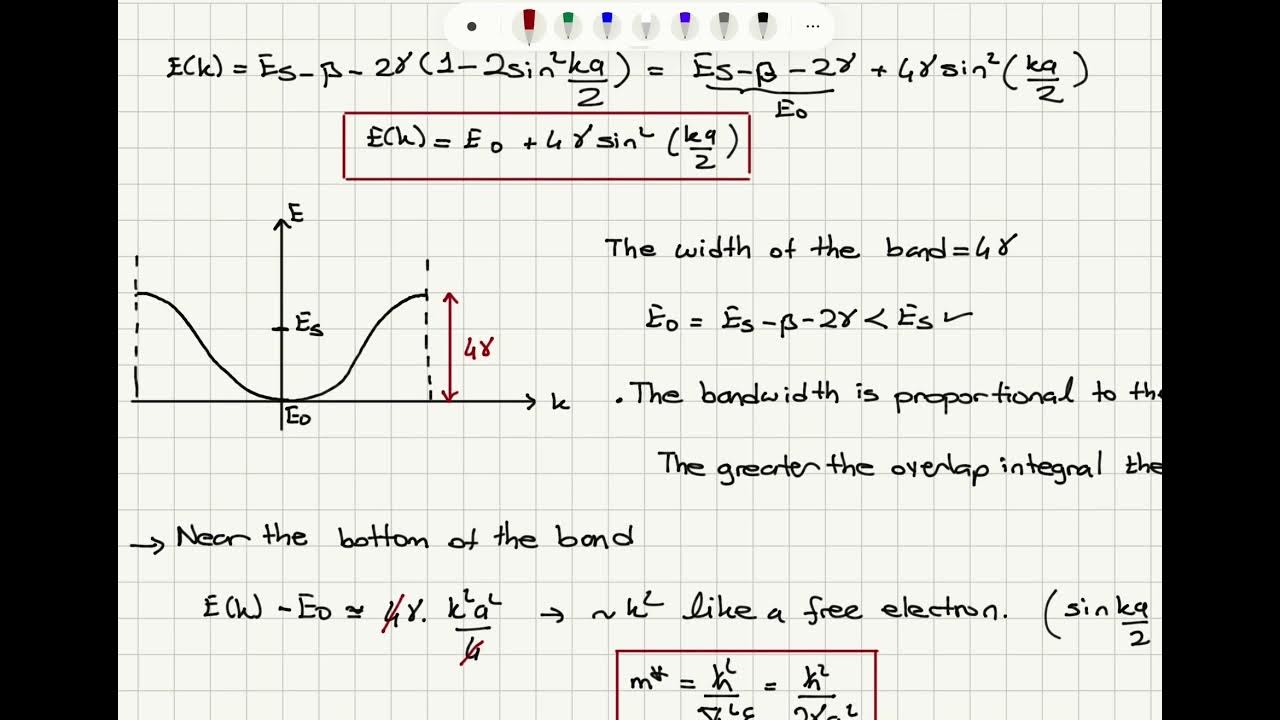 E(k) = Es - β - 2γ (1 - 2sin² ka/2) = Es - β - 2γ + 4γ sin² (ka/2)
E0
E(k) = E0 + 4γ sin² (ka/2)
E
The width of the band = 4γ
Es
E0 = Es - β - 2γ < Es ✓
4γ
k
. The bandwidth is proportional to the
E0
The greater the overlap integral the
→ Near the bottom of the band
E(k) - E0 ≃ 4γ. k²a²/4 → ~ k² like a free electron. (sin ka/2
m* = ħ²/∇k²ε = ħ²/2γa²